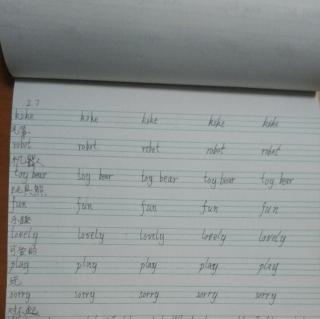 2.7
kike kike kike kike kike
robot robot robot robot robot
机器人
toy bear toy bear toy bear toy bear toy bear
玩具熊
fun fun fun fun fun
乐趣
lovely lovely lovely lovely lovely
可爱的
play play play play play
玩
sorry sorry sorry sorry sorry